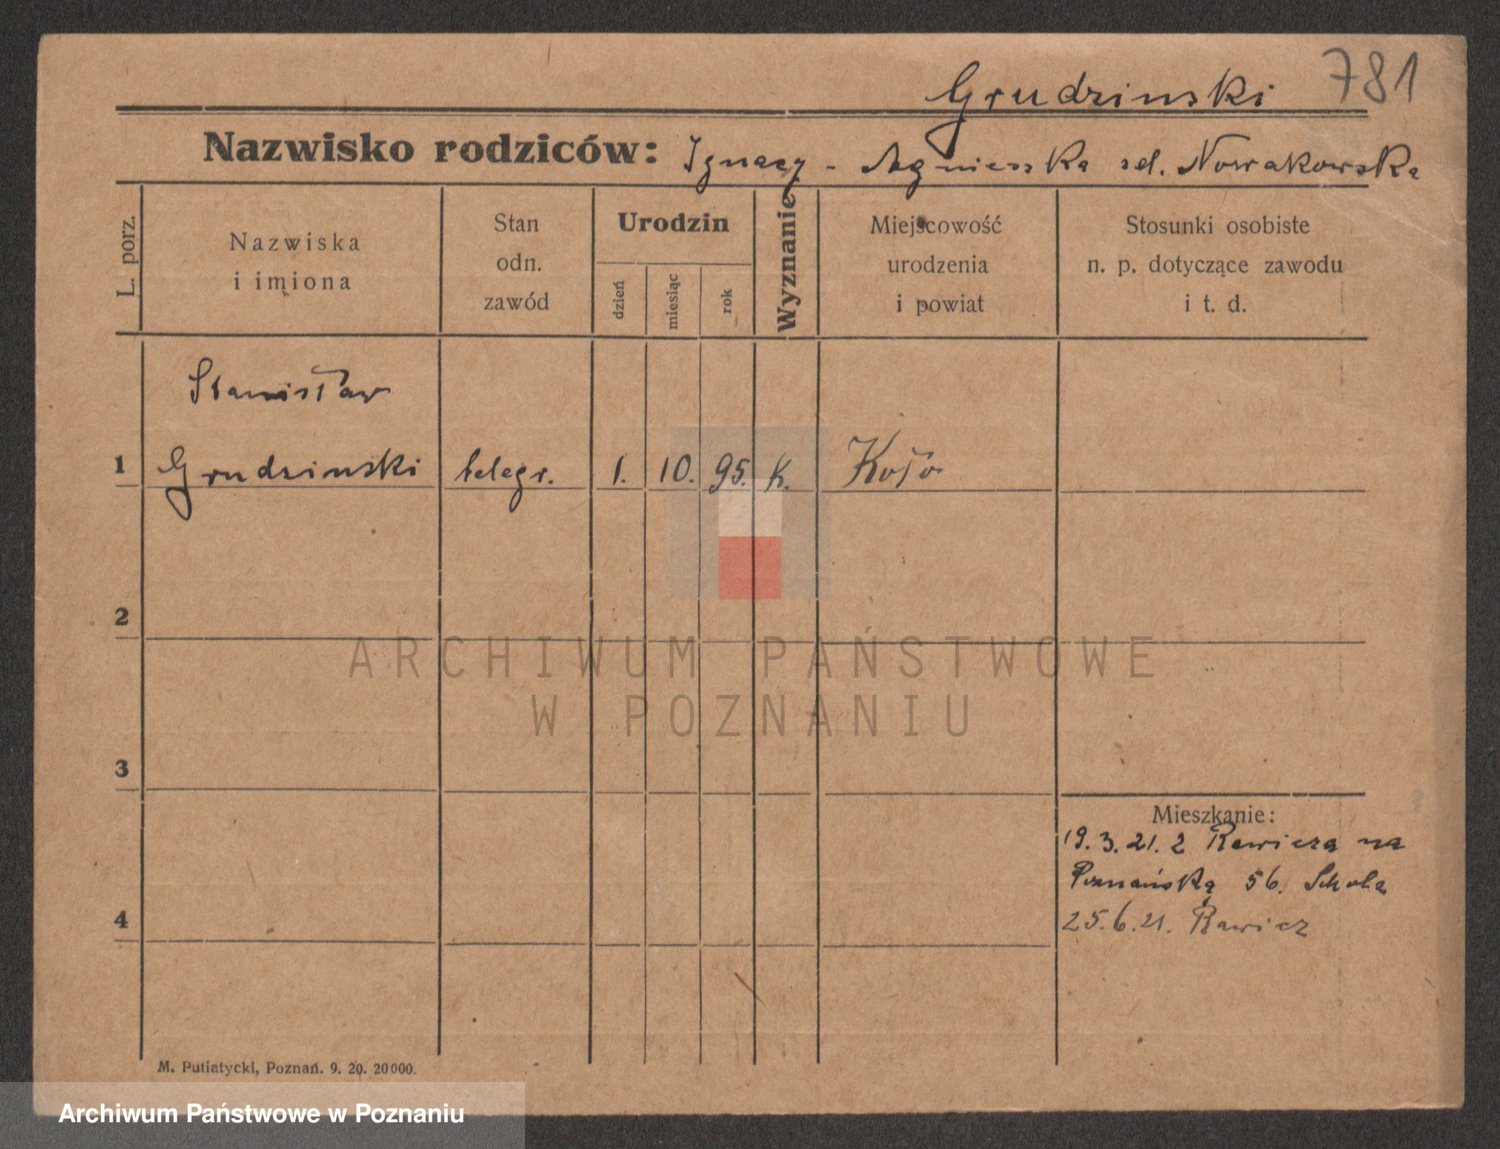 Grudzinski 781
Nazwisko rodziców: Ignacy - Agnieszka zd. Nowakowska
L. porz.
Nazwiska
i imiona
Stan
odn.
zawód
Urodzin
dzień
miesiąc
rok
Wyznanie
Miejscowość
urodzenia
i powiat
Stosunki osobiste
n. p. dotyczące zawodu
i t. d.
Stanisław
1 Grudzinski telegr. 1. 10. 95. K. Koło
2
ARCHIWUM PAŃSTWOWE
W POZNANIU
3
Mieszkanie:
19.3.21. z Rawicza na
Poznańską 56. Szkoła
4
25.6.21. Rawicz
M. Putiatycki, Poznań. 9. 20. 20000.
Archiwum Państwowe w Poznaniu